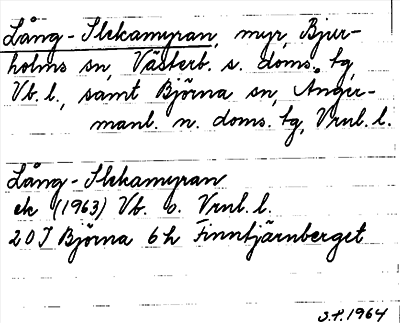 Lång-Slekamyran, myr, Bjur-
holms sn, Västerb. s. doms. tg,
Vb. l., samt Björna sn, Ånger-
manl. n. doms. tg, Vrnl. l.
Lång-Slekamyran
ek (1963) Vb. o. Vrnl. l.
20J Björna 6h Finntjärnberget
1964